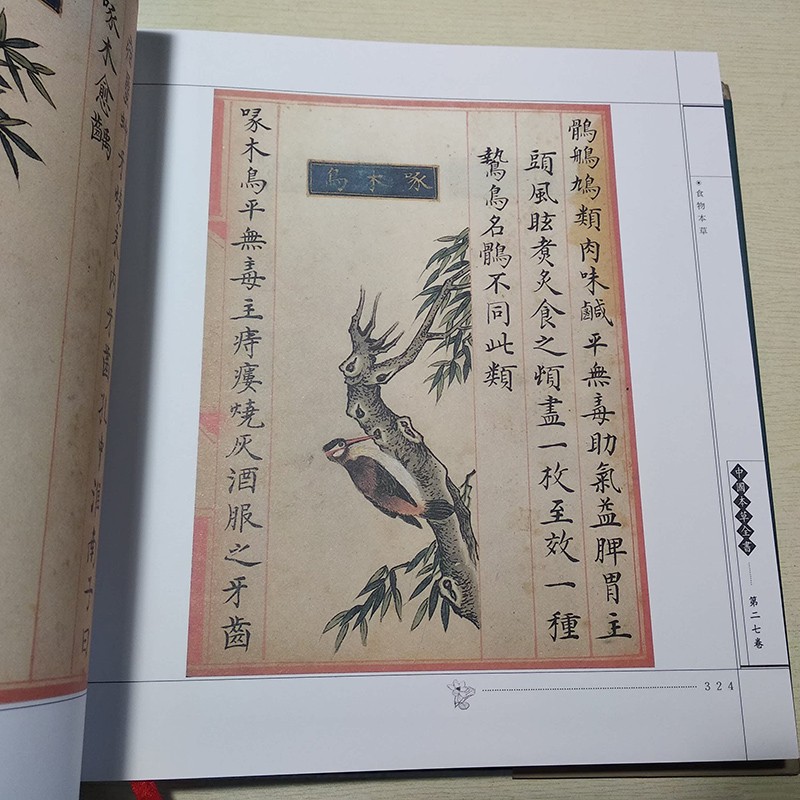 鶻鵃鳩類肉味鹹平無毒助氣益脾胃主
頭風眩煮炙食之頃盡一枚至效一種
鷙鳥名鶻不同此類
啄木鳥
啄木鳥平無毒主痔瘻燒灰酒服之牙齒
牙燒末內牙齒孔中淮南子曰
啄木愈齲
食物本草
中國本草全書
第二七卷
324